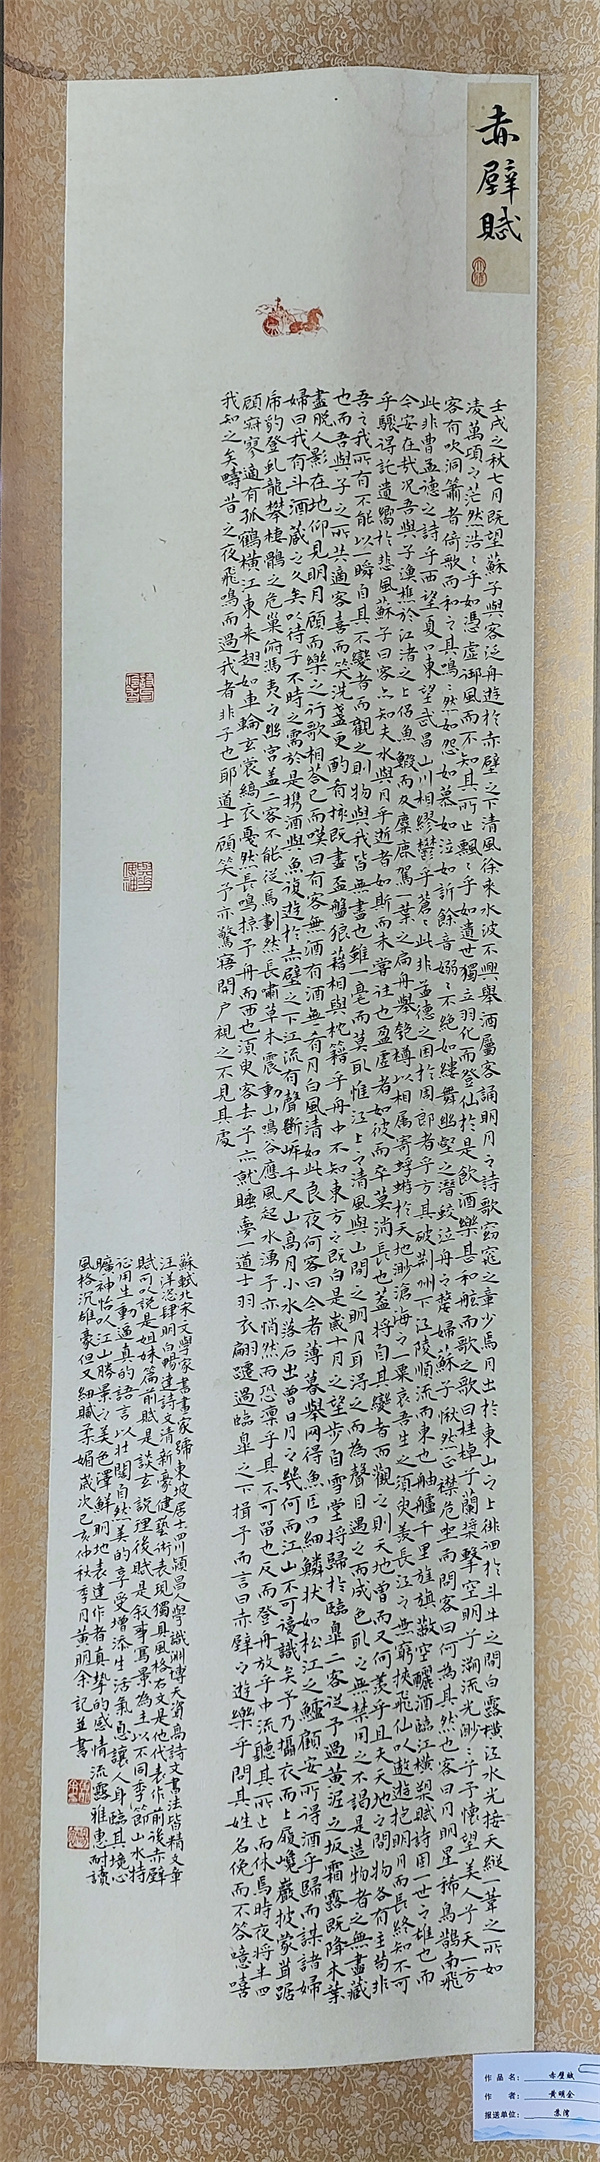 赤壁賦
壬戌之秋七月既望蘇子與客泛舟遊於赤壁之下清風徐來水波不興舉酒屬客誦明月之詩歌窈窕之章少焉月出於東山之上徘徊於斗牛之間白露橫江水光接天縱一葦之所如
凌萬頃之茫然浩浩乎如憑虛御風而不知其所止飄飄乎如遺世獨立羽化而登仙於是飲酒樂甚和舷而歌之歌曰桂棹子蘭槳擊空明兮溯流光渺渺兮予懷望美人兮天一方
客有吹洞簫者倚歌而和之其鳴鳴然如怨如慕如泣如訴餘音嫋嫋不絕如縷舞幽壑之潛蛟泣舟之嫠婦蘇子愀然正襟危坐而問客曰何為其然也客曰月明星稀烏鵲南飛
此非曹孟德之詩乎西望夏口東望武昌山川相繆鬱乎蒼蒼此非孟德之困於周郎者乎方其破荊州下江陵順流而東也舳艫千里旌旗蔽空釃酒臨江橫槊賦詩固一世之雄也而
今安在哉況吾與子漁樵於江渚之上侶魚鰕而友麋鹿駕一葉之扁舟舉匏樽以相屬寄蜉蝣於天地渺滄海之一粟哀吾生之須臾羨長江之無窮挾飛仙以遨遊抱明月而長終知不可
乎驟得託遺響於悲風蘇子曰客亦知夫水與月乎逝者如斯而未嘗往也盈虛者如彼而卒莫消長也蓋將自其變者而觀之則天地曾而又何羨乎且夫天地之間物各有主苟非
吾之我所有不能以一瞬自其不變者而觀之則物與我皆無盡也雖一毫而莫取惟江上之清風與山間之明月耳得之而為聲目遇之而成色取之無禁用之不竭是造物者之無盡藏
也而吾與子之所共適客喜而笑洗盞更酌肴核既盡盃盤狼藉相與枕籍乎舟中不知東方之既白是歲十月之望步自雪堂將歸於臨皋二客從予過黃泥之坂霜露既降木葉
盡脫人影在地仰見明月顧而樂之行歌相答已而嘆曰有客無酒有酒無肴月白風清如此良夜何客曰今者薄暮舉網得魚巨口細鱗狀如松江之鱸顧安所得酒乎歸而謀諸婦
婦曰我有斗酒藏之久矣以待子不時之需於是攜酒與魚復遊於赤壁之下江流有聲斷岸千尺山高月小水落石出曾日月之幾何而江山不可識矣予乃攝衣而上履巉巖披蒙茸踞
虎豹登虬龍攀棲鶻之危巢俯馮夷之幽宮蓋二客不能從焉劃然長嘯草木震動山鳴谷應風起水湧予亦悄然而恐凜乎其不可留也反而登舟放乎中流聽其所止而休焉時夜將半四
顧寂寥適有孤鶴橫江東來翅如車輪玄裳縞衣戛然長鳴掠予舟而西也須臾客去予亦就睡夢一道士羽衣翩躚過臨皋之下揖予而言曰赤壁之遊樂乎問其姓名俛而不答噫嘻
我知之矣疇昔之夜飛鳴而過我者非子也耶道士顧笑予亦驚寤開戶視之不見其處
蘇軾北宋文學家書畫家號東坡居士四川穎昌人學識淵博天資高詩文書法皆精文章
汪洋恣肆明白暢達詩文清新豪健藝術表現獨具風格右文是他代表作前後赤壁
賦可以說是姐妹篇前賦是談玄說理後賦是敘事寫景為主以不同季節山水特
征用生動逼真的語言以壯闊自然美的享受增添生活氣息讓人身臨其境心
曠神怡以江山勝景之美色澤鮮明地表達作者真摯的感情流露雅惠耐讀
風格沉雄豪但又細膩柔媚歲次己亥仲秋季月黃明余記並書
作品名：赤壁賦
作者：黃明余
报送单位：